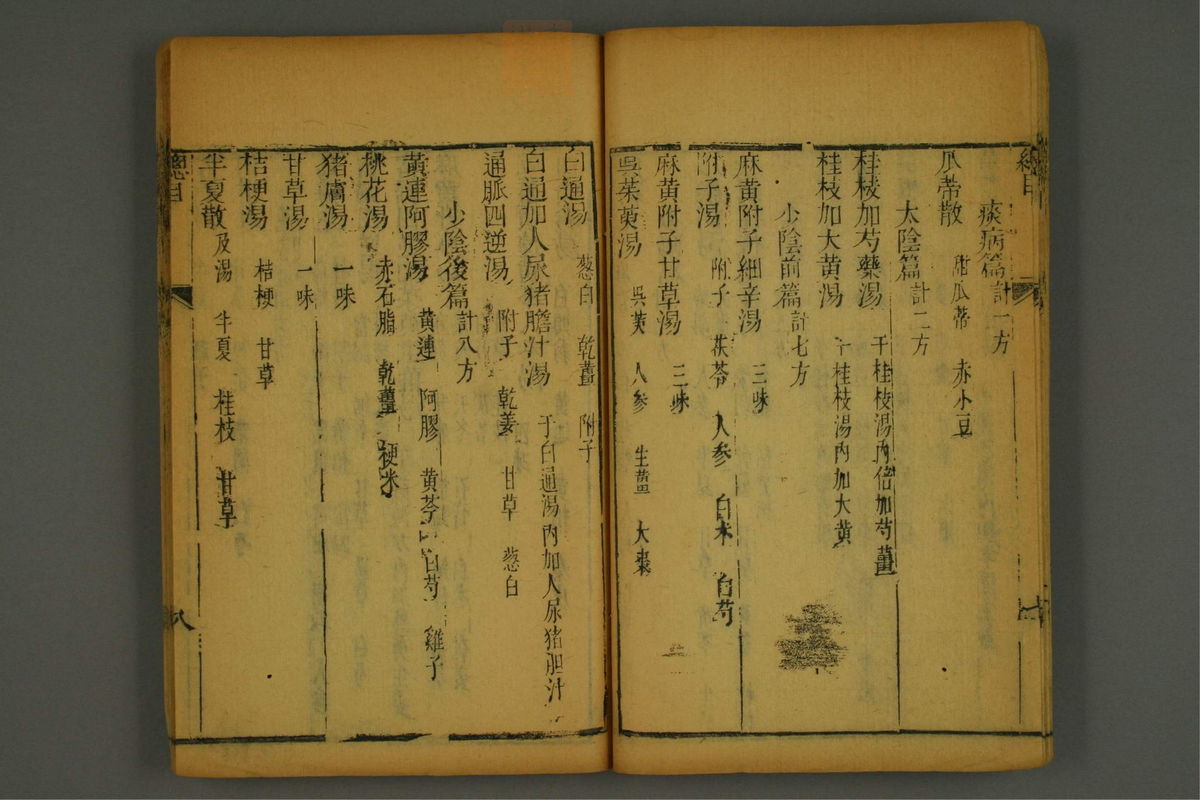 總目
痰病篇 計一方
瓜蒂散 甜瓜蒂 赤小豆
太陰篇 計二方
桂枝加芍藥湯 于桂枝湯內倍加芍薑
桂枝加大黃湯 于桂枝湯內加大黃
少陰前篇 計七方
麻黃附子細辛湯 三味
附子湯 附子 茯苓 人參 白术 白芍
麻黃附子甘草湯 三味
吳茱萸湯 吳萸 人參 生薑 大棗
白通湯 葱白 乾薑 附子
白通加人尿猪膽汁湯 于白通湯內加人尿猪胆汁
通脈四逆湯 附子 乾姜 甘草 葱白
少陰後篇 計八方
黃連阿膠湯 黄連 阿膠 黄芩 白芍 雞子
桃花湯 赤石脂 乾薑 粳米
猪膚湯 一味
甘草湯 一味
桔梗湯 桔梗 甘草
半夏散及湯 半夏 桂枝 甘草
總目
八